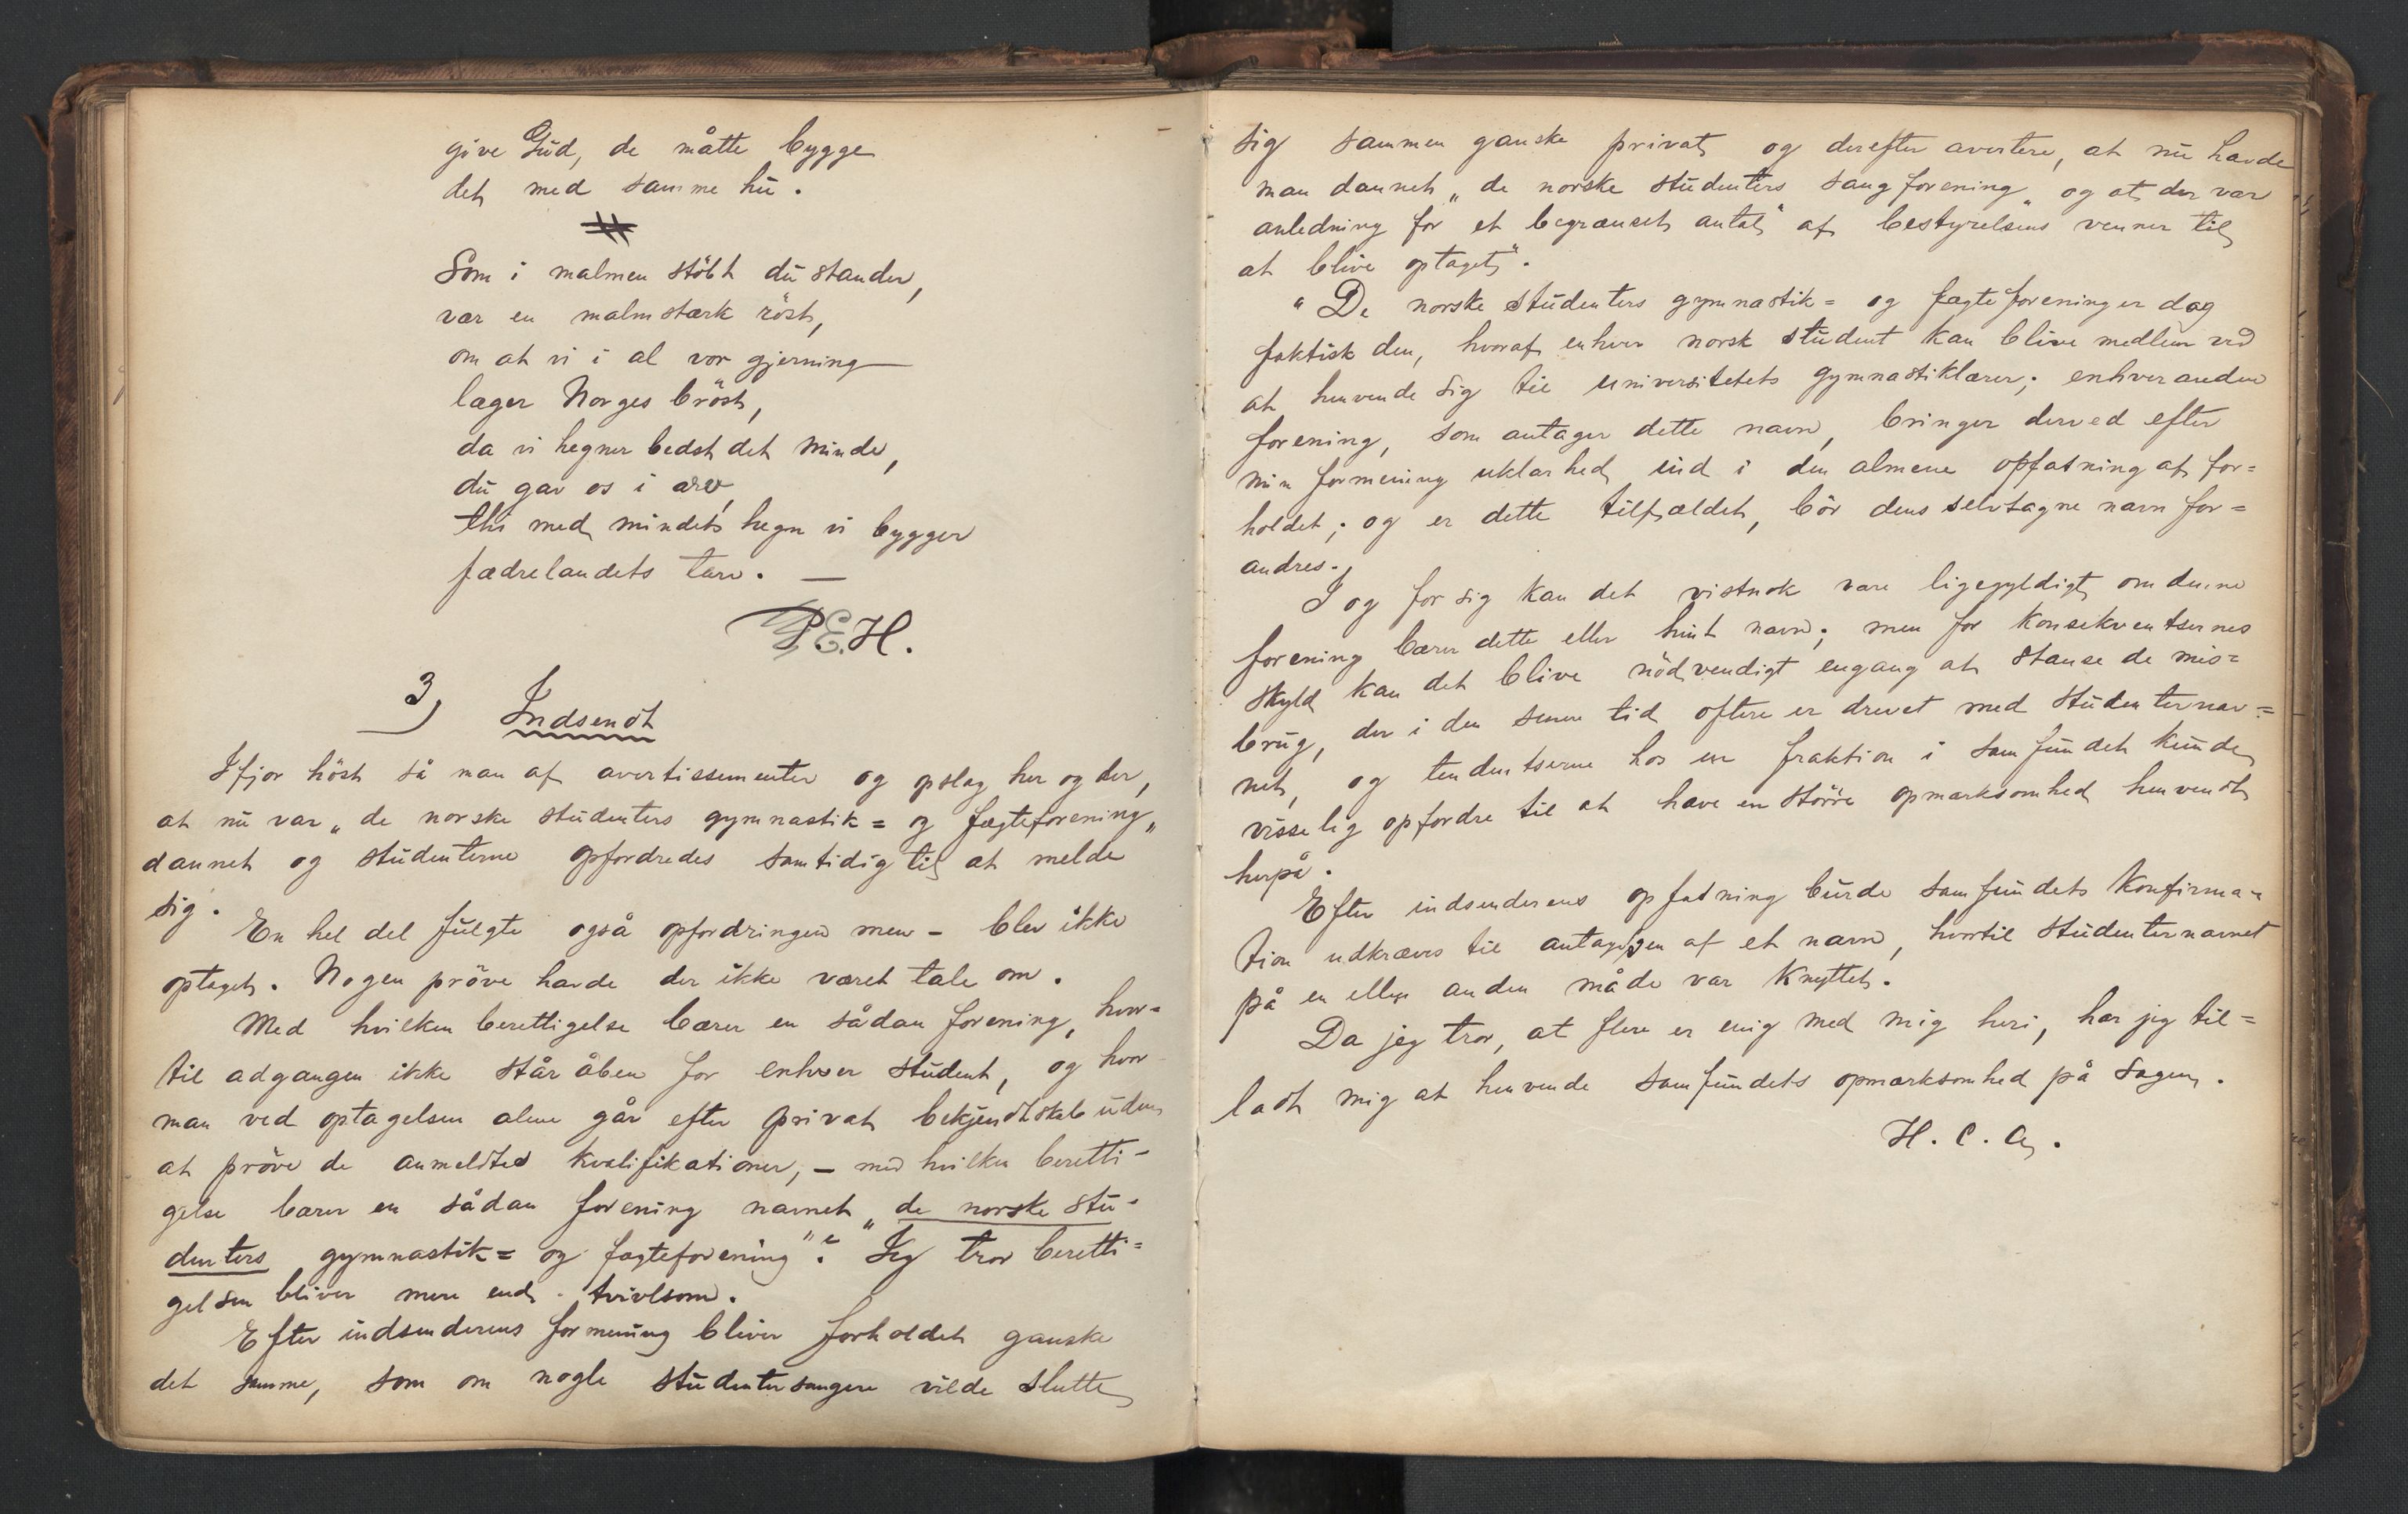 give Gud, de måtte bygge
det med samme hu.
Som i malmen støbt du stander,
vær en malmstærk röst,
om at vi i al vor gjerning
læger Norges bröst,
da vi hegner bedst det minde,
du gav os i arv,
thi med mindets hegn vi bygger
fædrelandets tarv. —
P.E.H.
3) Indsendt
Ifjor höst så man af avertissementer og opslag her og der,
at nu var „de norske studenters gymnastik= og fægteforening„
dannet og studenterne opfordredes samtidig til at melde
sig.
En hel del fulgte også opfordringen men – blev ikke
optaget. Nogen pröve havde der ikke været tale om.
Med hvilken berettigelse bærer en sådan forening, hvor=
til adgangen ikke står åben for enhver student, og hvor
man ved optagelsen alene går efter privat bekjendtskab uden
at pröve de anmeldtes kvalifikationer, – med hvilken beretti-
gelse bærer en sådan forening navnet „de norske stu-
denters gymnastik= og fægteforening"? Jeg tror beretti=
gelsen bliver mere end - tvivlsom.
Efter indsenderens formening bliver forholdet ganske
det samme, som om nogle studentersangere vilde slutte
sig sammen ganske privat og derefter avertere, at nu havde
man dannet „de norske studenters sangforening" og at der var
anledning for et begrænset antal" af bestyrelsens venner til
at blive optaget".
"De norske studenters gymnastik= og fægteforening er dog
faktisk den, hvoraf enhver norsk student kan blive medlem ved
at henvende sig til universitetets gymnastiklærer; enhver anden
forening, som antager dette navn, bringer derved efter
min formening uklarhed ind i den almene opfatning af for=
holdet; og er dette tilfældet, bör dens selvtagne navn for=
andres.
I og for sig kan det vistnok være ligegyldigt, om denne
forening bærer dette eller hint navn; men for konsekventsernes
skyld kan det blive nödvendigt engang at stanse de mis=
brug, der i den senere tid oftere er drevet med studenternav=
net, og tendentserne hos en fraktion i samfundet kunde
visselig opfordre til at have en större opmærksomhed henvendt
herpå.
Efter indsenderens opfatning burde samfundets konfirma=
tion udkræves til antagelsen af et navn, hvortil studenternavnet
på en eller anden måde var knyttet.
Da jeg tror, at flere er enig med mig heri, har jeg til=
ladt mig at henvende samfundets opmærksomhed på sagen.
H. C. A.